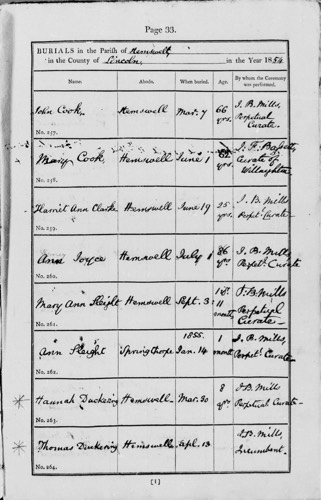 Page 33.
BURIALS in the Parish of Hemswell
in the County of Lincoln, in the Year 1854
Name. Abode. When buried. Age. By whom the Ceremony was performed.
John Cook, Hemswell Mar. 7 66 yrs. J. B. Mills, Perpetual Curate.
No. 257.
Mary Cook, Hemswell June 1 Curate of Willoughton
No. 258.
Harriet Ann Clarke Hemswell June 19 25 yrs. J. B. Mills Perpet. Curate
No. 259.
Ann Joyce Hemswell July 1 86 yrs. J. B. Mills Perpetl. Curate
No. 260.
Mary Ann Sleight Hemswell Sept. 3 11 months J. B. Mills Perpetual Curate
No. 261.
1855.
Ann Sleight Springthorpe Jan. 14 1 month J. B. Mills, Perpetl. Curate
No. 262.
Hannah Duckering Hemswell Mar. 20 8 yrs. J. B. Mills Perpetual Curate
No. 263.
Thomas Duckering Hemswell Apl. 13 J. B. Mills, Incumbent.
No. 264.
[1]